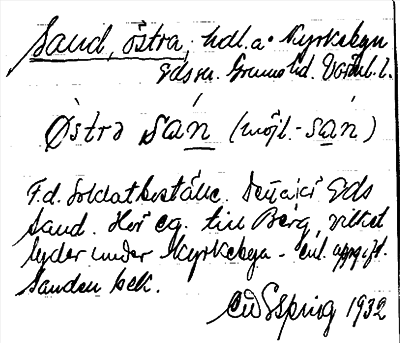 Sand, östra, hdl. a. Kyrkebyn
Eds sn. Grums hd. Värml. l.
Östrə sán (möjl. -sán)
F.d. soldatställe. Eds
Sand. Hör eg. till Berg, vilket
lyder under Kyrkebyn - enl. uppgift.
Sanden bek.
1932